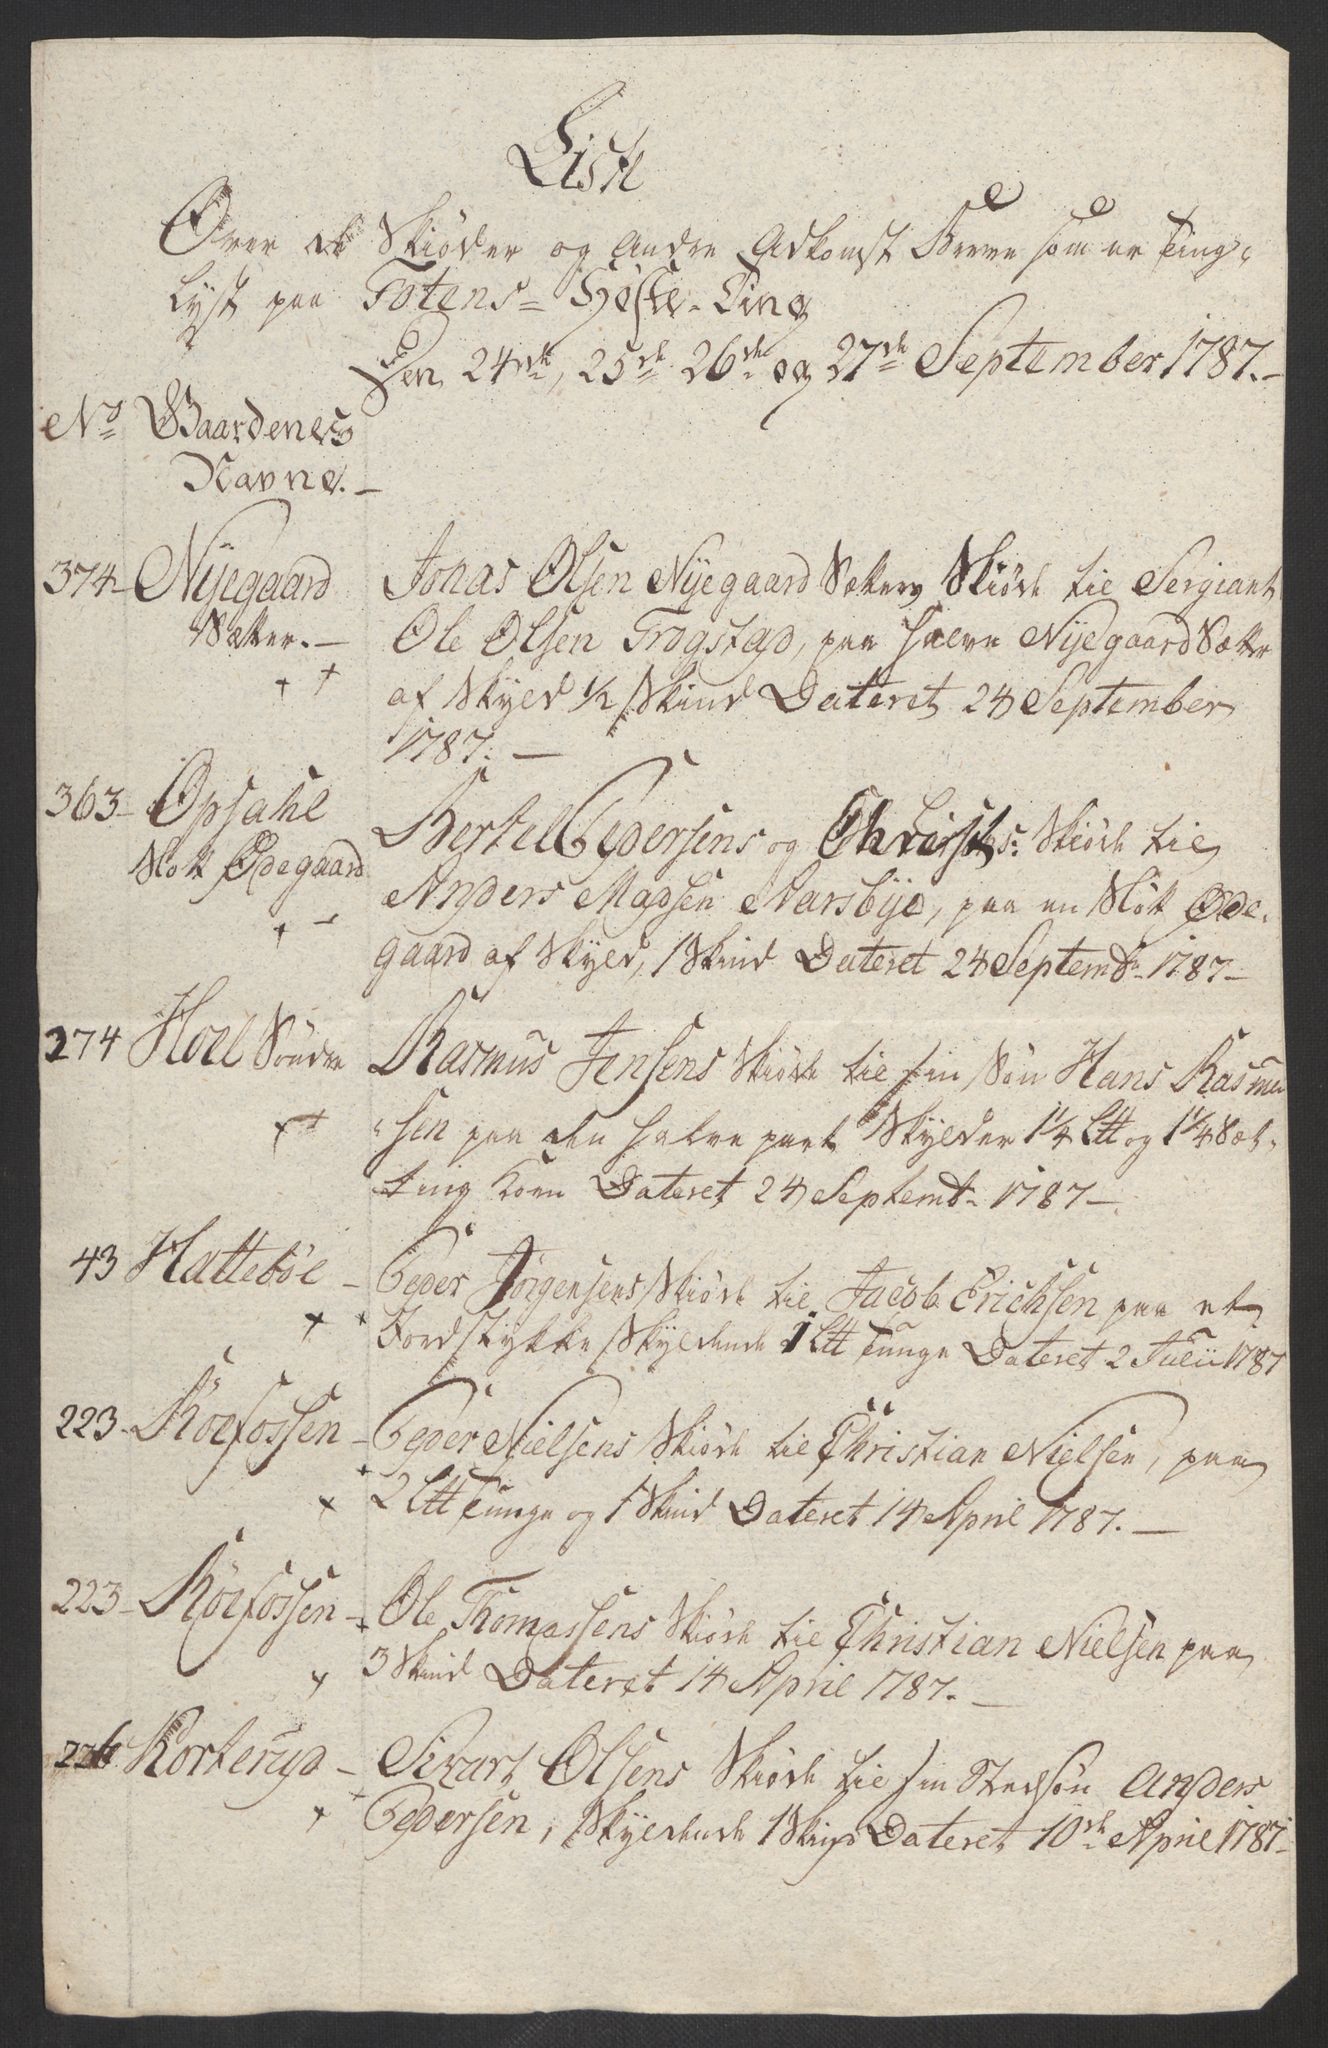 Liste
Over de Skiøder og andre Adkomst Breve som er Ting-
lyst paa Totens Høste-Ting
Den 24de, 25de 26de og 27de September 1787.
No Gaardenes
Navne.
374 Nijegaard Jonas Olsen Nijegaard Sætters Skiøde til Sergiant
Sætter. Ole Olsen Trogstad, paa halve Nijegaard Sætter
af Skyld 1/2 Skind Dateret 24 September
1787.
363 Opsahl Bertel Pedersens og Christs: Skiøde til
Slot Ødegaard Anders Madsen Narsbije, paa en Slot Øde-
gaard af Skyld, 1 Skind Dateret 24 Septembr 1787
274 Hoel Søndre Rasmus Jensens Skiøde til sin Søn Hans Rasmu
sen paa den halve part Skylder 1 1/4 Ltt og 1 1/4 Sæt-
ting Korn Dateret 24 Septembr 1787
43 Hattebøe Peder Jörgensens Skiøde til Jacob Erichsen paa et
Jordstykke Skyldende 1 Ltt Tunge Dateret 2 Julii 1787
223 Röefossen Peder Nielsens Skiøde til Christian Nielsen, paa
2 Ltt Tunge og 1 Skind Dateret 14 April 1787.
223 Röefossen Ole Thomassens Skiøde til Christian Nielsen paa
3 Skind Dateret 14 April 1787.
226 Korterud Sivart Olsens Skiøde til sin Stedsøn Anders
Pedersen, Skyldende 1 Skind Dateret 10de April 1787